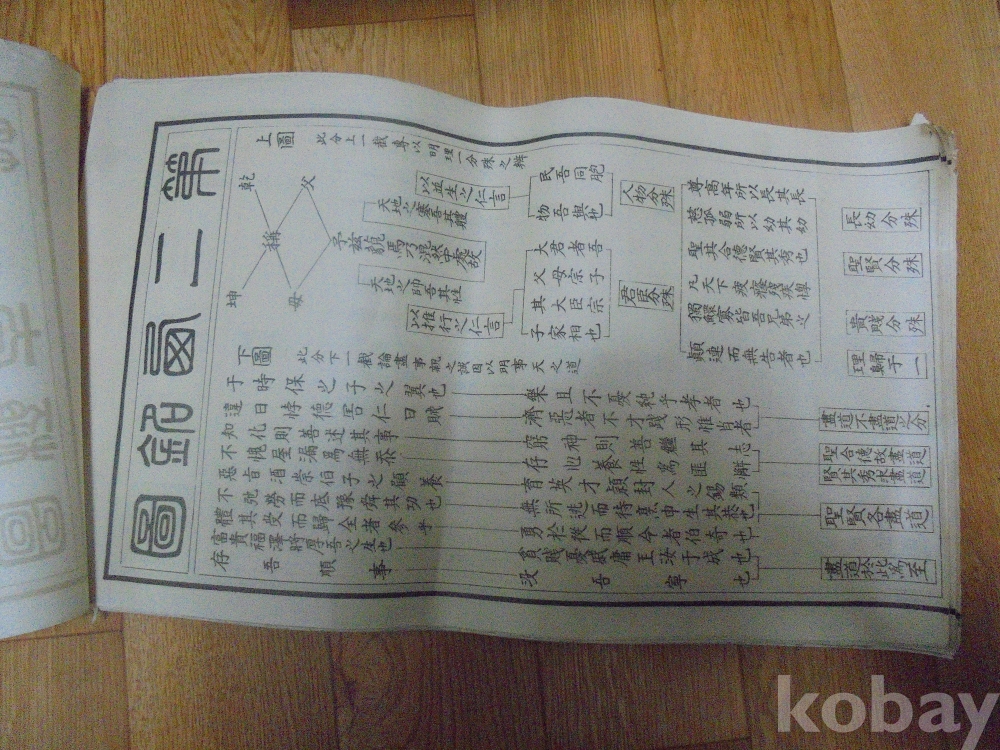 第二西銘圖
上圖
此分上一截專以明理一分殊之辨
乾
父
稱
坤
母
予玆藐焉乃混然中處故
天地之塞吾其體
天地之帥吾其性
以並生之仁言
以推行之仁言
民吾同胞
物吾與也
大君者吾
父母宗子
其大臣宗
子家相也
人物分殊
君臣分殊
尊高年所以長其長
慈孤弱所以幼其幼
聖其合德賢其秀也
凡天下疲癃殘疾惸
獨鰥寡皆吾兄弟之
顚連而無告者也
長幼分殊
聖賢分殊
貴賤分殊
理歸于一
下圖
此分下一截論盡事親之誠因以明事天之道
于時保之子之翼也
樂且不憂純乎孝者也
違曰悖德害仁曰賊
濟惡者不才踐形惟肖者也
知化則善述其事
窮神則善繼其志
不愧屋漏爲無忝
存心養性爲匪懈
惡旨酒崇伯子之顧養
育英才潁封人之錫類
不弛勞而底豫舜其功也
無所逃而待烹申生其恭也
體其受而歸全者參乎
勇於從而順令者伯奇也
富貴福澤將厚吾之生也
貧賤憂戚庸玉汝于成也
存吾順事
沒吾寧也
盡道不盡道之分
聖合德故盡道
賢其秀求盡道
聖賢各盡道
盡道於此爲至
kobay